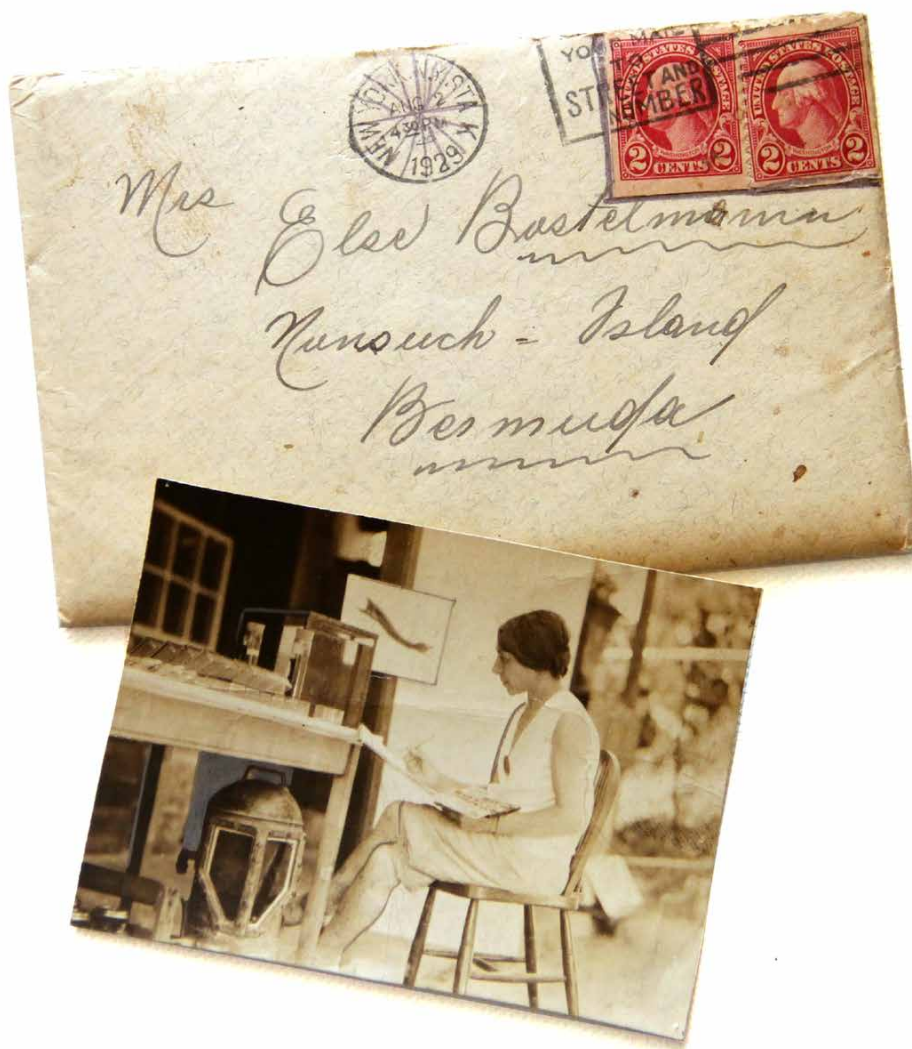 NEW YORK, N.Y. STA. K
AUG 2
4 30 PM
1929
MAIL
TO
STREET AND
NUMBER
UNITED STATES POSTAGE
2 CENTS 2
UNITED STATES POSTAGE
2 CENTS 2
Mrs
Else Bostelmann
Nonsuch - Island
Bermuda